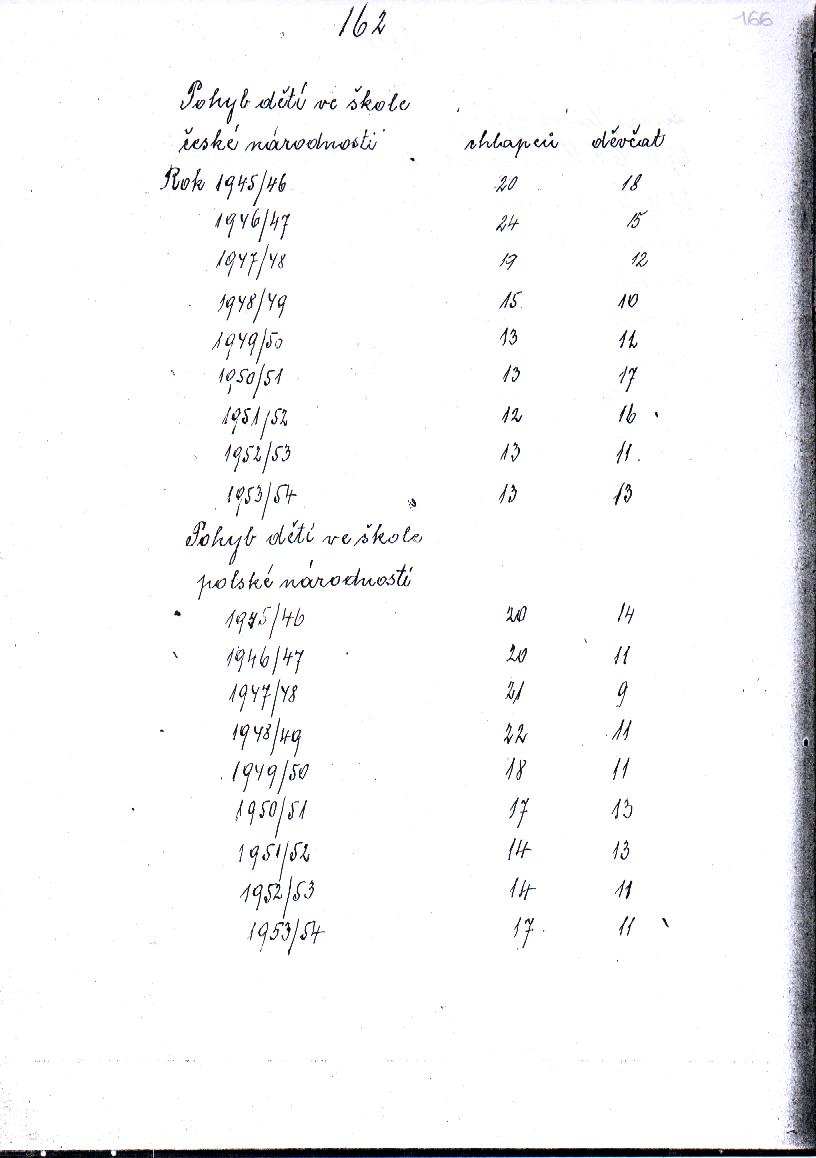 162
166
Pohyb dětí ve škole
české národnosti chlapců děvčat
Rok 1945/46 20 18
1946/47 24 15
1947/48 19 12
1948/49 15 10
1949/50 13 12
1950/51 13 17
1951/52 12 16
1952/53 13 11
1953/54 13 13
Pohyb dětí ve škole
polské národnosti
1945/46 20 14
1946/47 20 11
1947/48 21 9
1948/49 22 11
1949/50 18 11
1950/51 17 13
1951/52 14 13
1952/53 14 11
1953/54 17 11